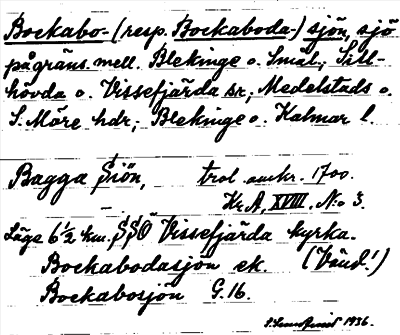 Bockabo- (resp. Bockaboda-) sjön, sjö
på gräns. mell. Blekinge o. Smål.; Sill-
hövda o. Vissefjärda sr; Medelstads o.
S. Möre hdr; Blekinge o. Kalmar l.
Bagga Siön, trol. omkr. 1700.
Kr. A, XVIII, No 3.
Läge 6 1/2 km. SSO Vissefjärda kyrka.
Bockabodasjön ek. (Vänd!)
Bockabosjön G. 16.
1936.